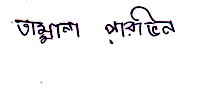 তাম্মানা পারভিন